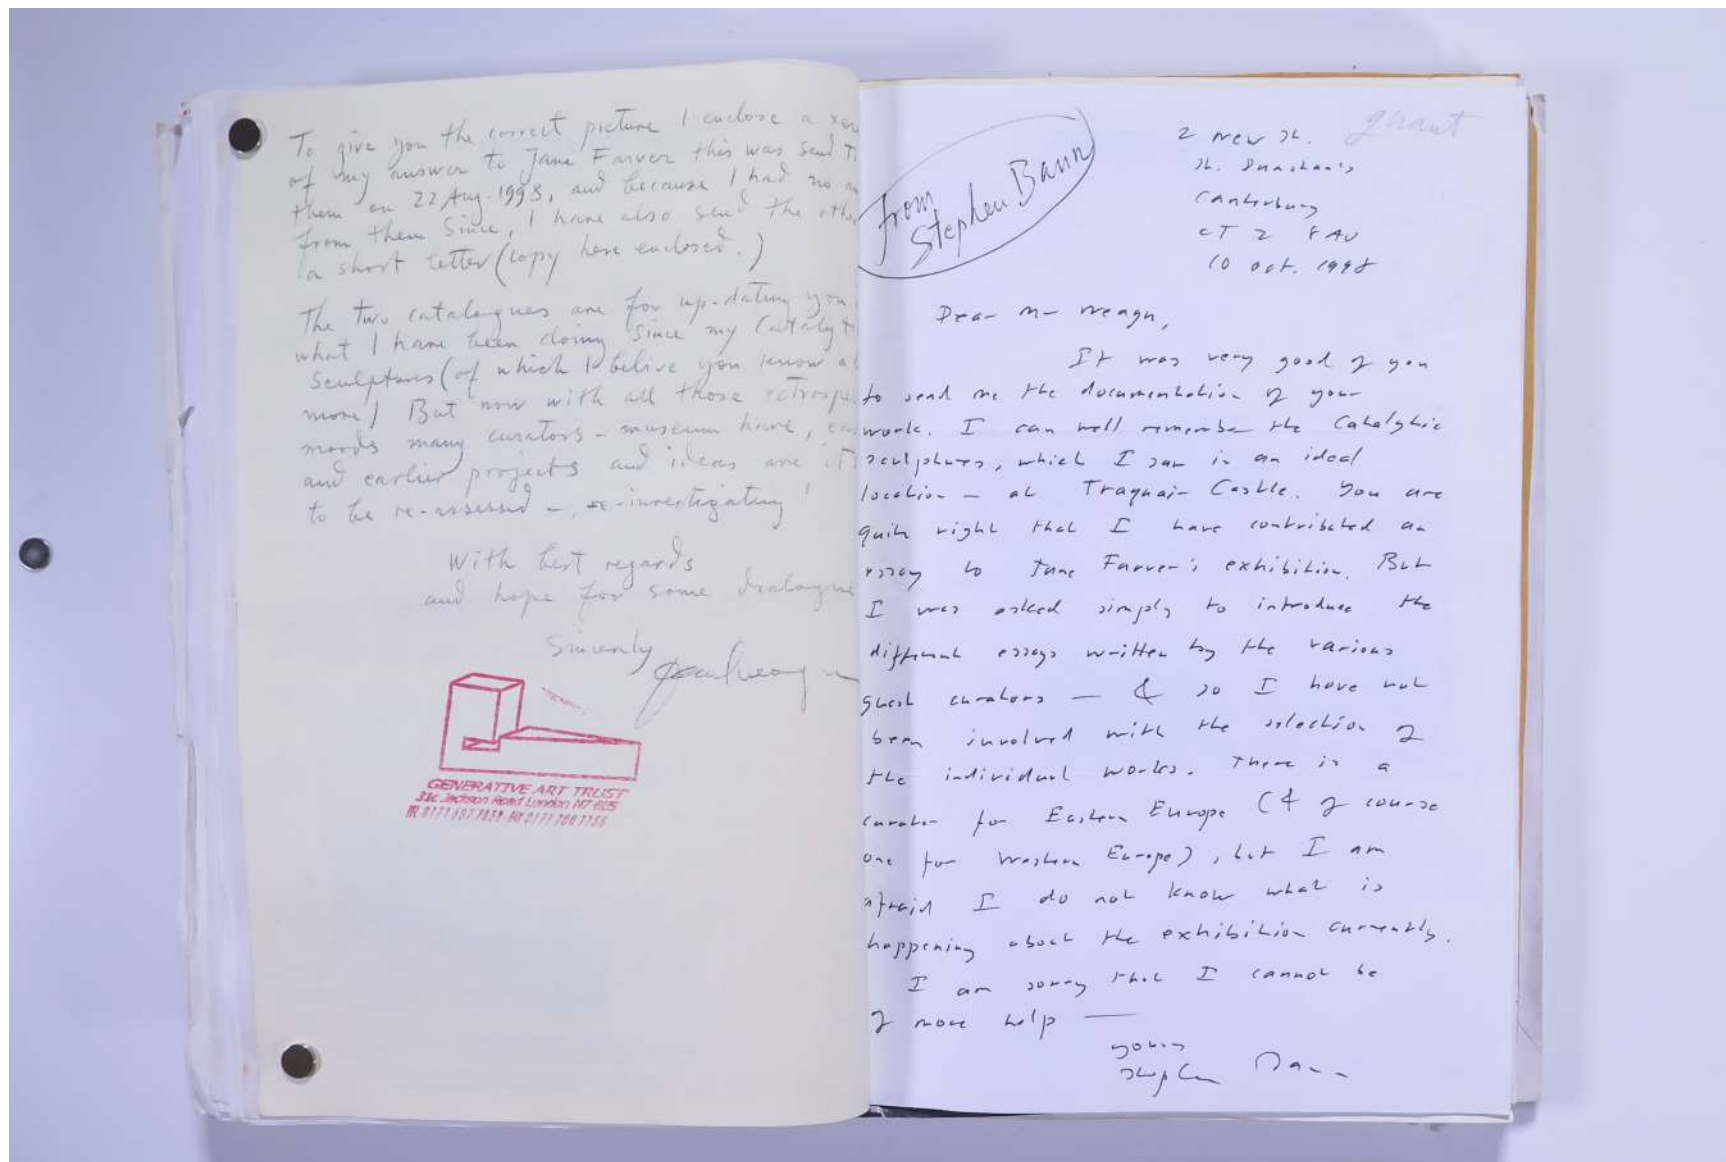 To give you the correct picture I enclose a xer
of my answer to Jane Farver this was send T
them on 22 Aug. 1998, and because I had no an
from them since, I have also send the othe
a short letter (copy here enclosed.)
The two catalogues are for up-dating you
what I have been doing since my Catalyti
Sculptures (of which I belive you know a
more) But now with all those retrospe
moods many curators - museum have, ea
and earlier projects and ideas are
to be re-assessed -, re-investigating!
With best regards
and hope for some dialogue
Sincerely
GENERATIVE ART TRUST
31c Jackson Road London N7 6ES
0171 607 7858 FAX 0171 700 7156
From
Stephen Bann
2 New St.
St. Dunstan's
Canterbury
CT 2 8AU
10 Oct. 1998
Dear Mr Neagu,
It was very good of you
to send me the documentation of your
work. I can well remember the Catalytic
sculptures, which I saw in an ideal
location - at Traquair Castle. You are
quite right that I have contributed an
essay to Jane Farver's exhibition. But
I was asked simply to introduce the
different essays written by the various
guest curators — & so I have not
been involved with the selection of
the individual works. There is a
curator for Eastern Europe (& of course
one for Western Europe), but I am
afraid I do not know what is
happening about the exhibition currently.
I am sorry that I cannot be
of more help —
yours
Stephen Bann